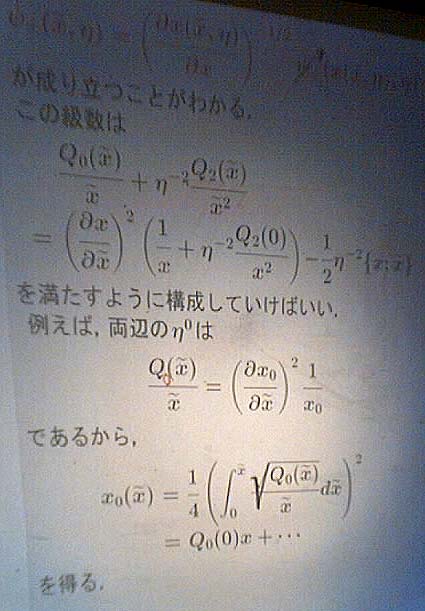 が成り立つことがわかる.
この級数は
Q₀(x̃)/x̃ + η⁻² Q₂(x̃)/x̃²
= (∂x/∂x̃)² (1/x + η⁻² Q₂(0)/x²) − 1/2 η⁻²{x; x̃}
を満たすように構成していけばいい.
例えば, 両辺の η⁰ は
Q₀(x̃)/x̃ = (∂x₀/∂x̃)² 1/x₀
であるから,
x₀(x̃) = 1/4 (∫₀^x̃ √(Q₀(x̃)/x̃) dx̃)²
= Q₀(0)x + ⋯
を得る.